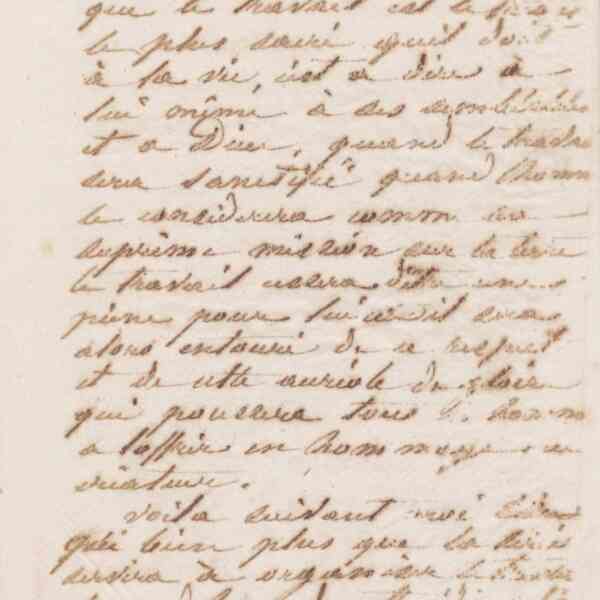 que le travail est le
le plus sacré quil doit
à la vie, cest a dire à
lui même, à ses semblables
et a Dieu, quand le travail
sera sanctifié quand lhomm
le considerera comm sa
suprème mission sur la terre
le travail cessera dêtre une
peine pour lui car il sera
alors entouré de ce respect
et de cette auréole de gloire
qui poussera tous
a loffrir en hommage au
créateur.
voila suivant moi
qui bien plus que la
servira à organiser le travail